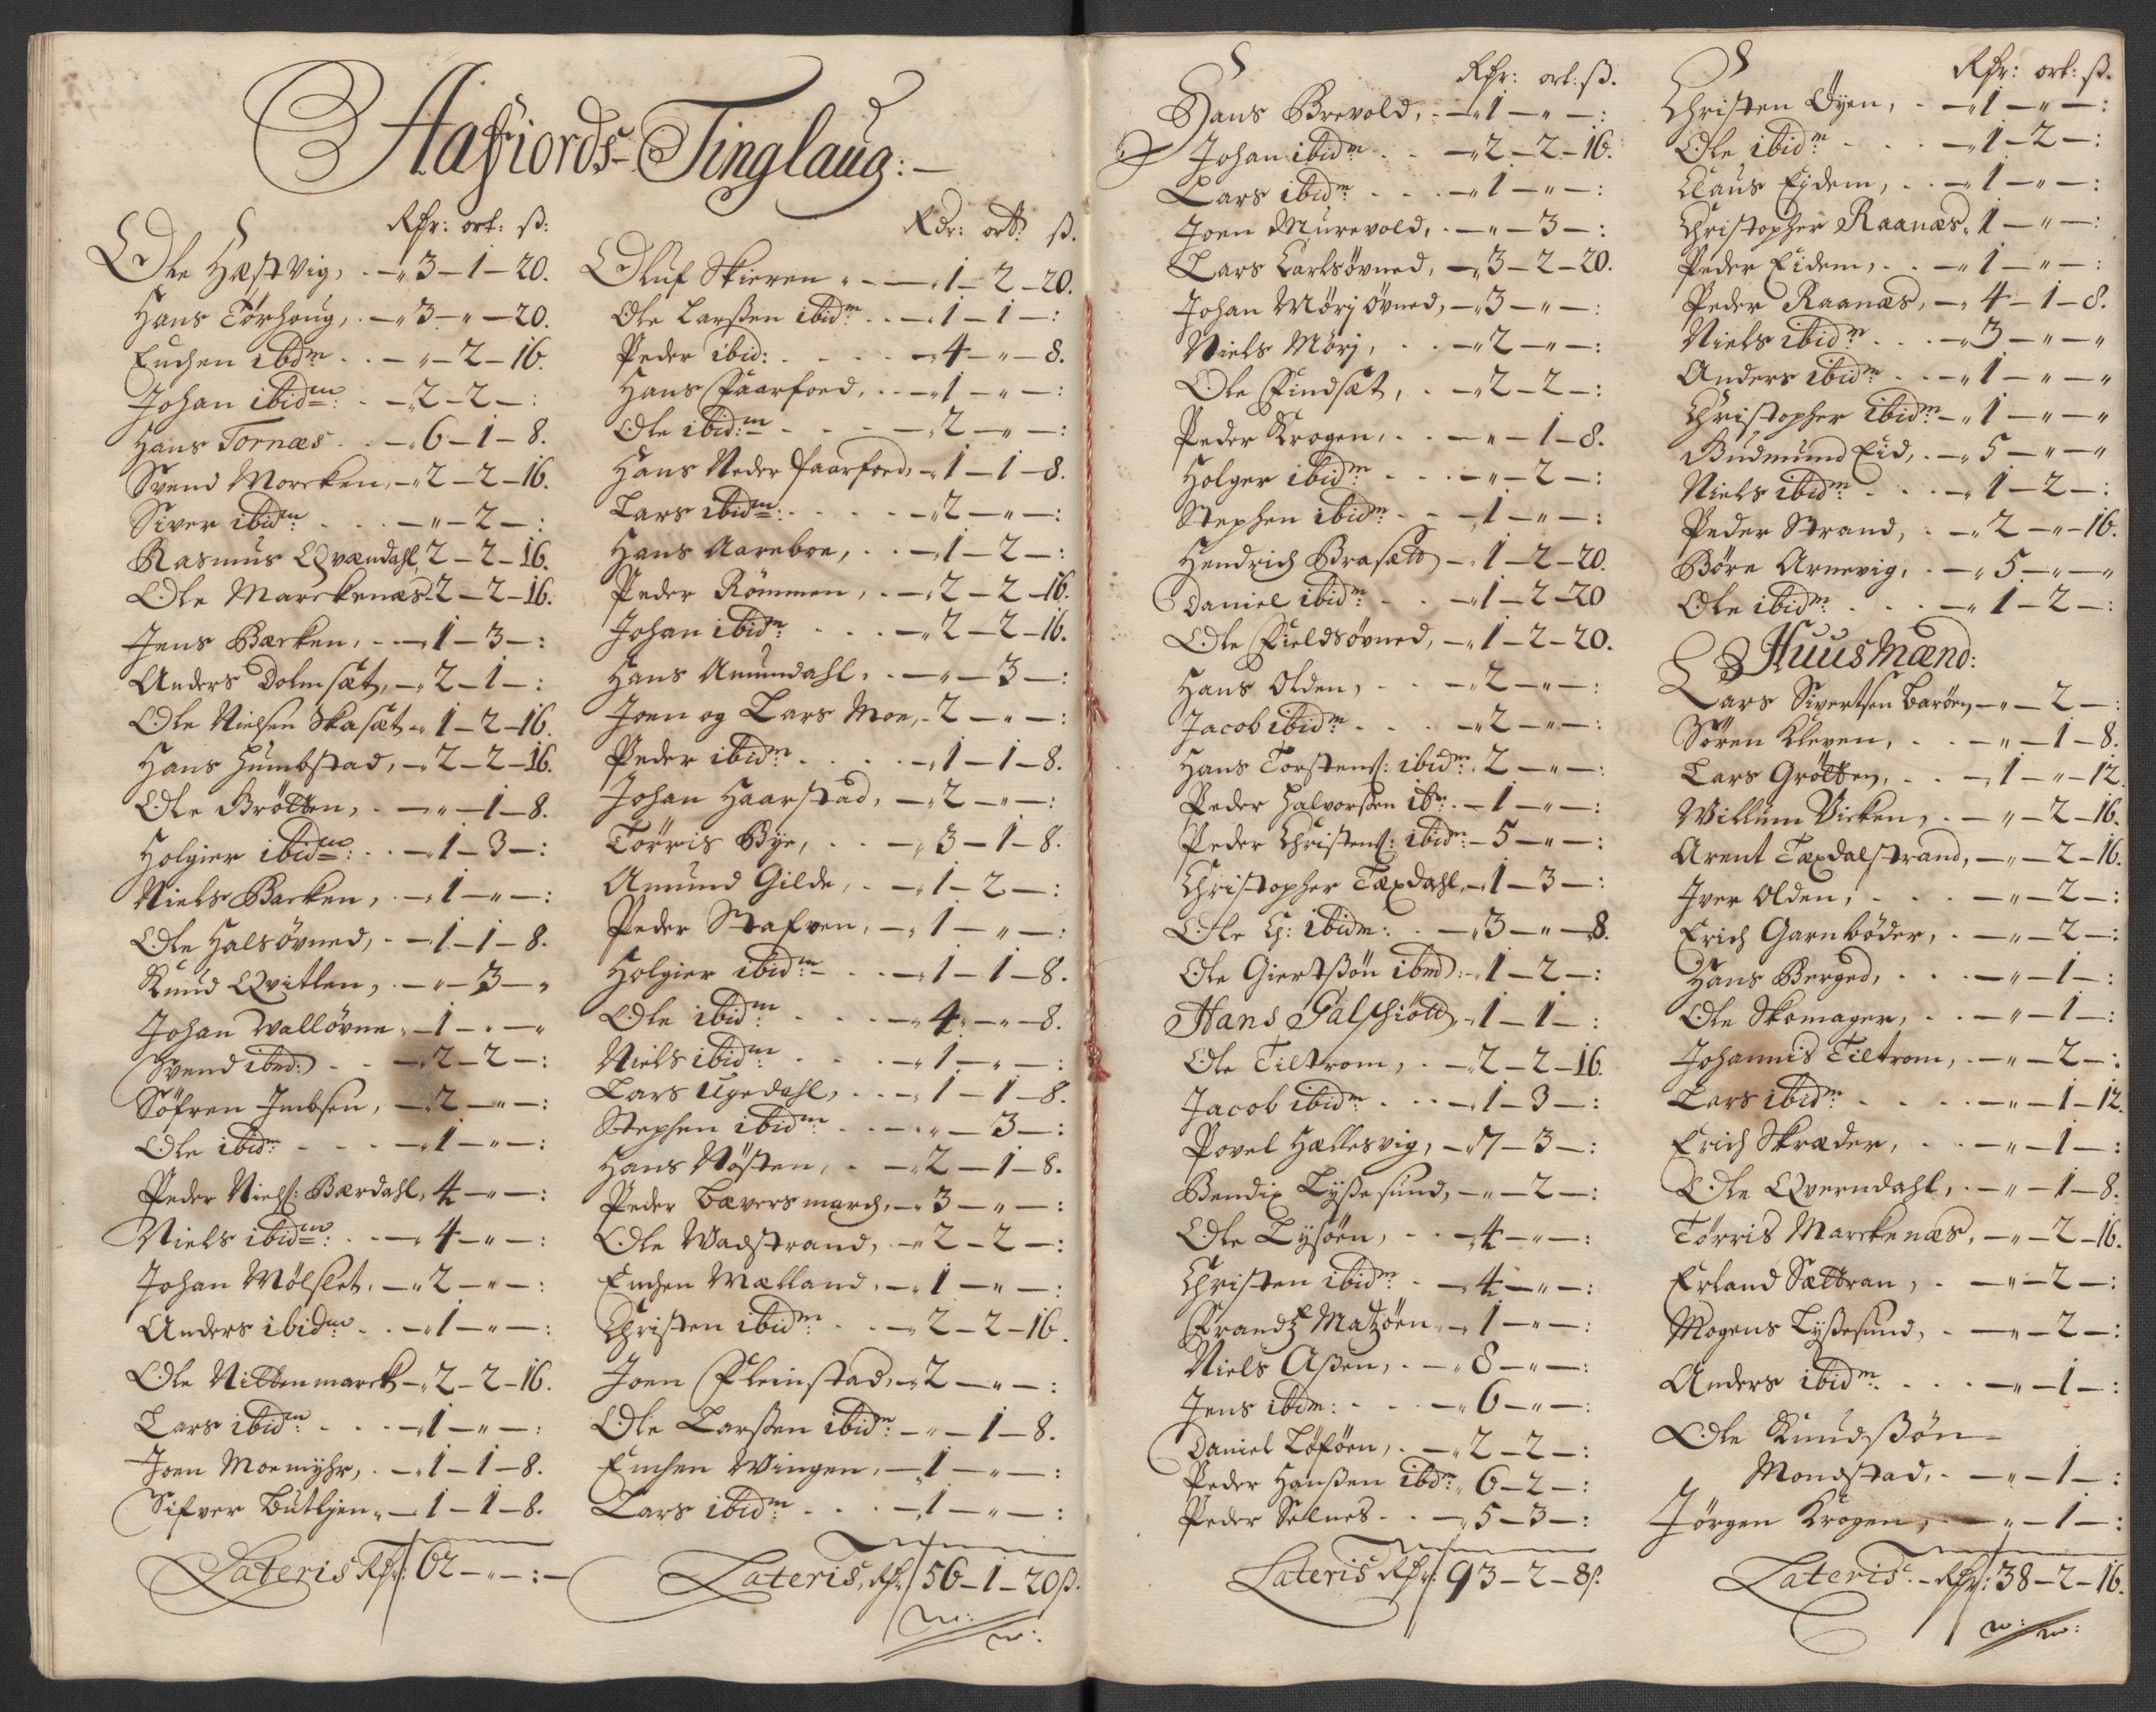 Aafiords Tinglaug: —
Rdr: ort: ß:
Ole Hæstvig, . —„ 3 — 1 — 20.
Hans Tørhoug, . —„ 3 — „ — 20.
Euchen ibdm . . — „ — 2 — 16.
Johan ibidm: . —„ 2 — 2 — :
Hans Tornæs . . —„ 6 — 1 — 8.
Svend Morcken, —„ 2 — 2 — 16.
Siver ibidm: . . . — „ — 2 — :
Rasmus Qvændahl, 2 — 2 — 16.
Ole Marckenæs — 2 — 2 — 16.
Jens Bærken, . . —„ 1 — 3 — :
Anders Dolmsæt, —„ 2 — 1 — :
Ole Nielsen Skasæt —„ 1 — 2 — 16.
Hans Humbstad, —„ 2 — 2 — 16.
Ole Brøtten, . — „ — 1 — 8.
Holgier ibidm: . . —„ 1 — 3 — :
Niels Barken, . —„ 1 — „ — :
Ole Halsøvned, . —„ 1 — 1 — 8.
Knud Qvitlen, . — „ — 3 — „
Johan Walløvne, —„ 1 — „ — „
Svend ibed: . . —„ 2 — 2 — :
Søfren Imbsen, —„ 2 — „ — :
Ole ibidm . . . —„ 1 — „ — :
Peder Niels: Bærdahl, 4 — „ — :
Niels ibidm: . . —„ 4 — „ — :
Johan Mølslet, —„ 2 — „ — :
Anders ibidm . . —„ 1 — „ — :
Ole Nittenmarck —„ 2 — 2 — 16.
Lars ibidm . . . —„ 1 — „ — :
Joen Moemyhr, . —„ 1 — 1 — 8.
Sifver Butljen, —„ 1 — 1 — 8.
Lateris Rdr: 62 — „ — : —
Rdr: ort: ß.
Oluf Skieren „ . —„ 1 — 2 — 20.
Ole Larßen ibidm . . —„ 1 — 1 — :
Peder ibid: . . . . —„ 4 — „ — 8.
Hans Faarfoed, . . —„ 1 — „ — :
Ole ibid:m . . . —„ 2 — „ — :
Hans Neder Faarfoed, —„ 1 — 1 — 8.
Lars ibidm: . . . . —„ 2 — „ — :
Hans Aareboe, . . —„ 1 — 2 — :
Peder Rømmen, . —„ 2 — 2 — 16.
Johan ibidm: . . . —„ 2 — 2 — 16.
Hans Amundahl, . — „ — 3 — :
Joen og Lars Moe, — 2 — „ — :
Peder ibidm . . . . —„ 1 — 1 — 8.
Johan Haarstad, —„ 2 — „ — :
Tørris Bye, . . —„ 3 — 1 — 8.
Amund Gilde, . —„ 1 — 2 — :
Peder Stafven, —„ 1 — „ — :
Holgier ibidm: . . —„ 1 — 1 — 8.
Ole ibidm: . . . —„ 4 — „ — 8.
Niels ibidm: . . . —„ 1 — „ — :
Lars Ugedahl, . . —„ 1 — 1 — 8.
Stephen ibidm: . . — „ — 3 — :
Hans Nøsten, . —„ 2 — 1 — 8.
Peder Bæversmarch, —„ 3 — „ — :
Ole Wadstrand, —„ 2 — 2 — :
Euchen Mælland, —„ 1 — „ — :
Christen ibidm: . . —„ 2 — 2 — 16.
Joen Fleinstad, —„ 2 — „ — :
Ole Larßen ibidm: — „ — 1 — 8.
Euchen Wingen, —„ 1 — „ — :
Lars ibidm: . . . —„ 1 — „ — :
Lateris, Rdr: 56 — 1 — 20ß.
Rdr: ort: ß.
Hans Brevold, . —„ 1 — „ — :
Johan ibidm . . —„ 2 — 2 — 16.
Lars ibidm: . . . —„ 1 — „ — :
Joen Murevold, . — „ — 3 — :
Lars Carlsøvned, —„ 3 — 2 — 20.
Johan Mørj Øvned, —„ 3 — „ — :
Niels Mørj, . . —„ 2 — „ — :
Ole Findsæt, . —„ 2 — 2 — :
Peder Krogen, . . — „ — 1 — 8.
Holger ibidm . . . — „ — 2 — :
Stephen ibidm: . . —„ 1 — „ — :
Hendrich Brasætt —„ 1 — 2 — 20.
Daniel ibidm: . . —„ 1 — 2 — 20
Ole Fieldsøvned, —„ 1 — 2 — 20.
Hans Olden, . . —„ 2 — „ — :
Jacob ibidm: . . . —„ 2 — „ — :
Hans Torstens: ibidm: 2 — „ — :
Peder Halvorßen ibm: . — 1 — „ — :
Peder Christens: ibidm: — 5 — „ — :
Christopher Tæxdahl, —„ 1 — 3 — :
Ole C: ibidm: . —„ 3 — „ — 8.
Ole Giertßøn ibmd: —„ 1 — 2 — :
Hans Galschiøtt, —„ 1 — 1 — :
Ole Tiltrom, . —„ 2 — 2 — 16.
Jacob ibidm . . —„ 1 — 3 — :
Povel Hellesvig, —„ 7 — 3 — :
Bendix Lyßesund, — „ — 2 — :
Ole Lysøen, . . —„ 4 — „ — :
Christen ibidm: . —„ 4 — „ — :
Frandz Matzøen, —„ 1 — „ — :
Niels Aßen, . —„ 8 — „ — :
Jens ibdm: . . . —„ 6 — „ — :
Daniel Løføen, . —„ 2 — 2 — :
Peder Hanßen ibdm: „ 6 — 2 — :
Peder Selnes . . —„ 5 — 3 — :
Lateris Rdr: 93 — 2 — 8ß.
Rdr: ort: ß.
Christen Øyen, . —„ 1 — „ — :
Ole ibidm: . . . —„ 1 — 2 — :
Claus Eydem, . . —„ 1 — „ — :
Christopher Raanæs, 1 — „ — :
Peder Eidem, . . —„ 1 — „ — :
Peder Raanæs, —„ 4 — 1 — 8.
Niels ibidm: . . . —„ 3 — „ — „
Anders ibidm: . . —„ 1 — „ — „
Christopher ibidm: —„ 1 — „ — „
Gudmund Eid, . —„ 5 — „ — „
Niels ibidm: . . . —„ 1 — 2 — :
Peder Strand, . —„ 2 — „ — 16.
Børe Arnevig, . —„ 5 — „ — „
Ole ibidm: . . . —„ 1 — 2 — :
Huusmænd:
Lars Sivertsen Barøen, — „ — 2 — :
Søren Kleven, . . — „ — 1 — 8.
Lars Grøtten, . . —„ 1 — „ — 12.
Willum Vicken, . — „ — 2 — 16.
Arent Tæxdalstrand, — „ — 2 — 16.
Iver Olden, . . . — „ — 2 — :
Erich Garnbøder, . — „ — 2 — :
Hans Berged, . . . — „ — 1 — :
Ole Skomager, . . — „ — 1 — :
Johannis Tiltrom, . — „ — 2 — :
Lars ibidm: . . . . — „ — 1 — 12.
Erich Skræder, . . — „ — 1 — :
Ole Qverndahl, . — „ — 1 — 8.
Tørris Marckenæs, — „ — 2 — 16.
Erland Sættran, . — „ — 2 — :
Mogens Lyßesund, . — „ — 2 — :
Anders ibidm: . . . — „ — 1 — :
Ole Knudßøn —
Mondstad, . — „ — 1 — :
Jørgen Krogen, . — „ — 1 — :
Lateris. — Rdr: 38 — 2 — 16.